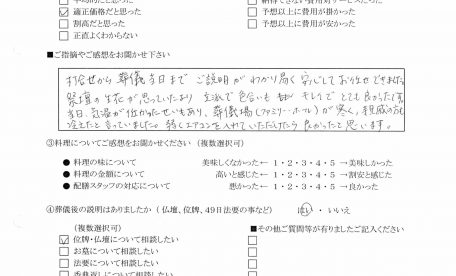 適正価格だと思った
割高だと思った
正直よくわからない
予想以上に費用が掛かった
予想以上に費用が安かった
■ご指摘やご感想をお聞かせ下さい
打合せから葬儀当日まで ご説明が わかり易く 安心してお任せできました
祭壇の生花が思っていたより 立派で色合いも キレイで とても良かったです
当日、気温が低かったせいもあり、葬儀場(ファミリーホール)が寒く、親戚の方も
冷えたと言っていました。弱くエアコンを入れていただけたら 良かったと思います。
③料理についてご感想をお聞かせください(複数選択可)
● 料理の味について 美味しくなかった← 1・2・3・4・5 →美味しかった
● 料理の金額について 高いと感じた← 1・2・3・4・5 →割安と感じた
● 配膳スタッフの対応について 悪かった← 1・2・3・4・5 →良かった
④葬儀後の説明はありましたか(仏壇、位牌、49日法要の事など) はい ・ いいえ
(複数選択可)
位牌・仏壇について相談したい
お墓について相談したい
法要について相談したい
香典返しについて相談したい
■その他ご質問等が有りましたご記入ください